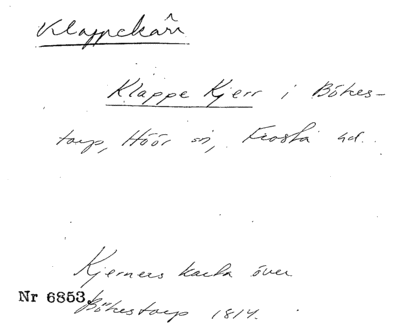 Klappekärr
Klappe Kjerr i Bökes-
torp, Höör sn, Frosta hd.
Kjerners karta över
Nr 6853. Bökestorp 1814.